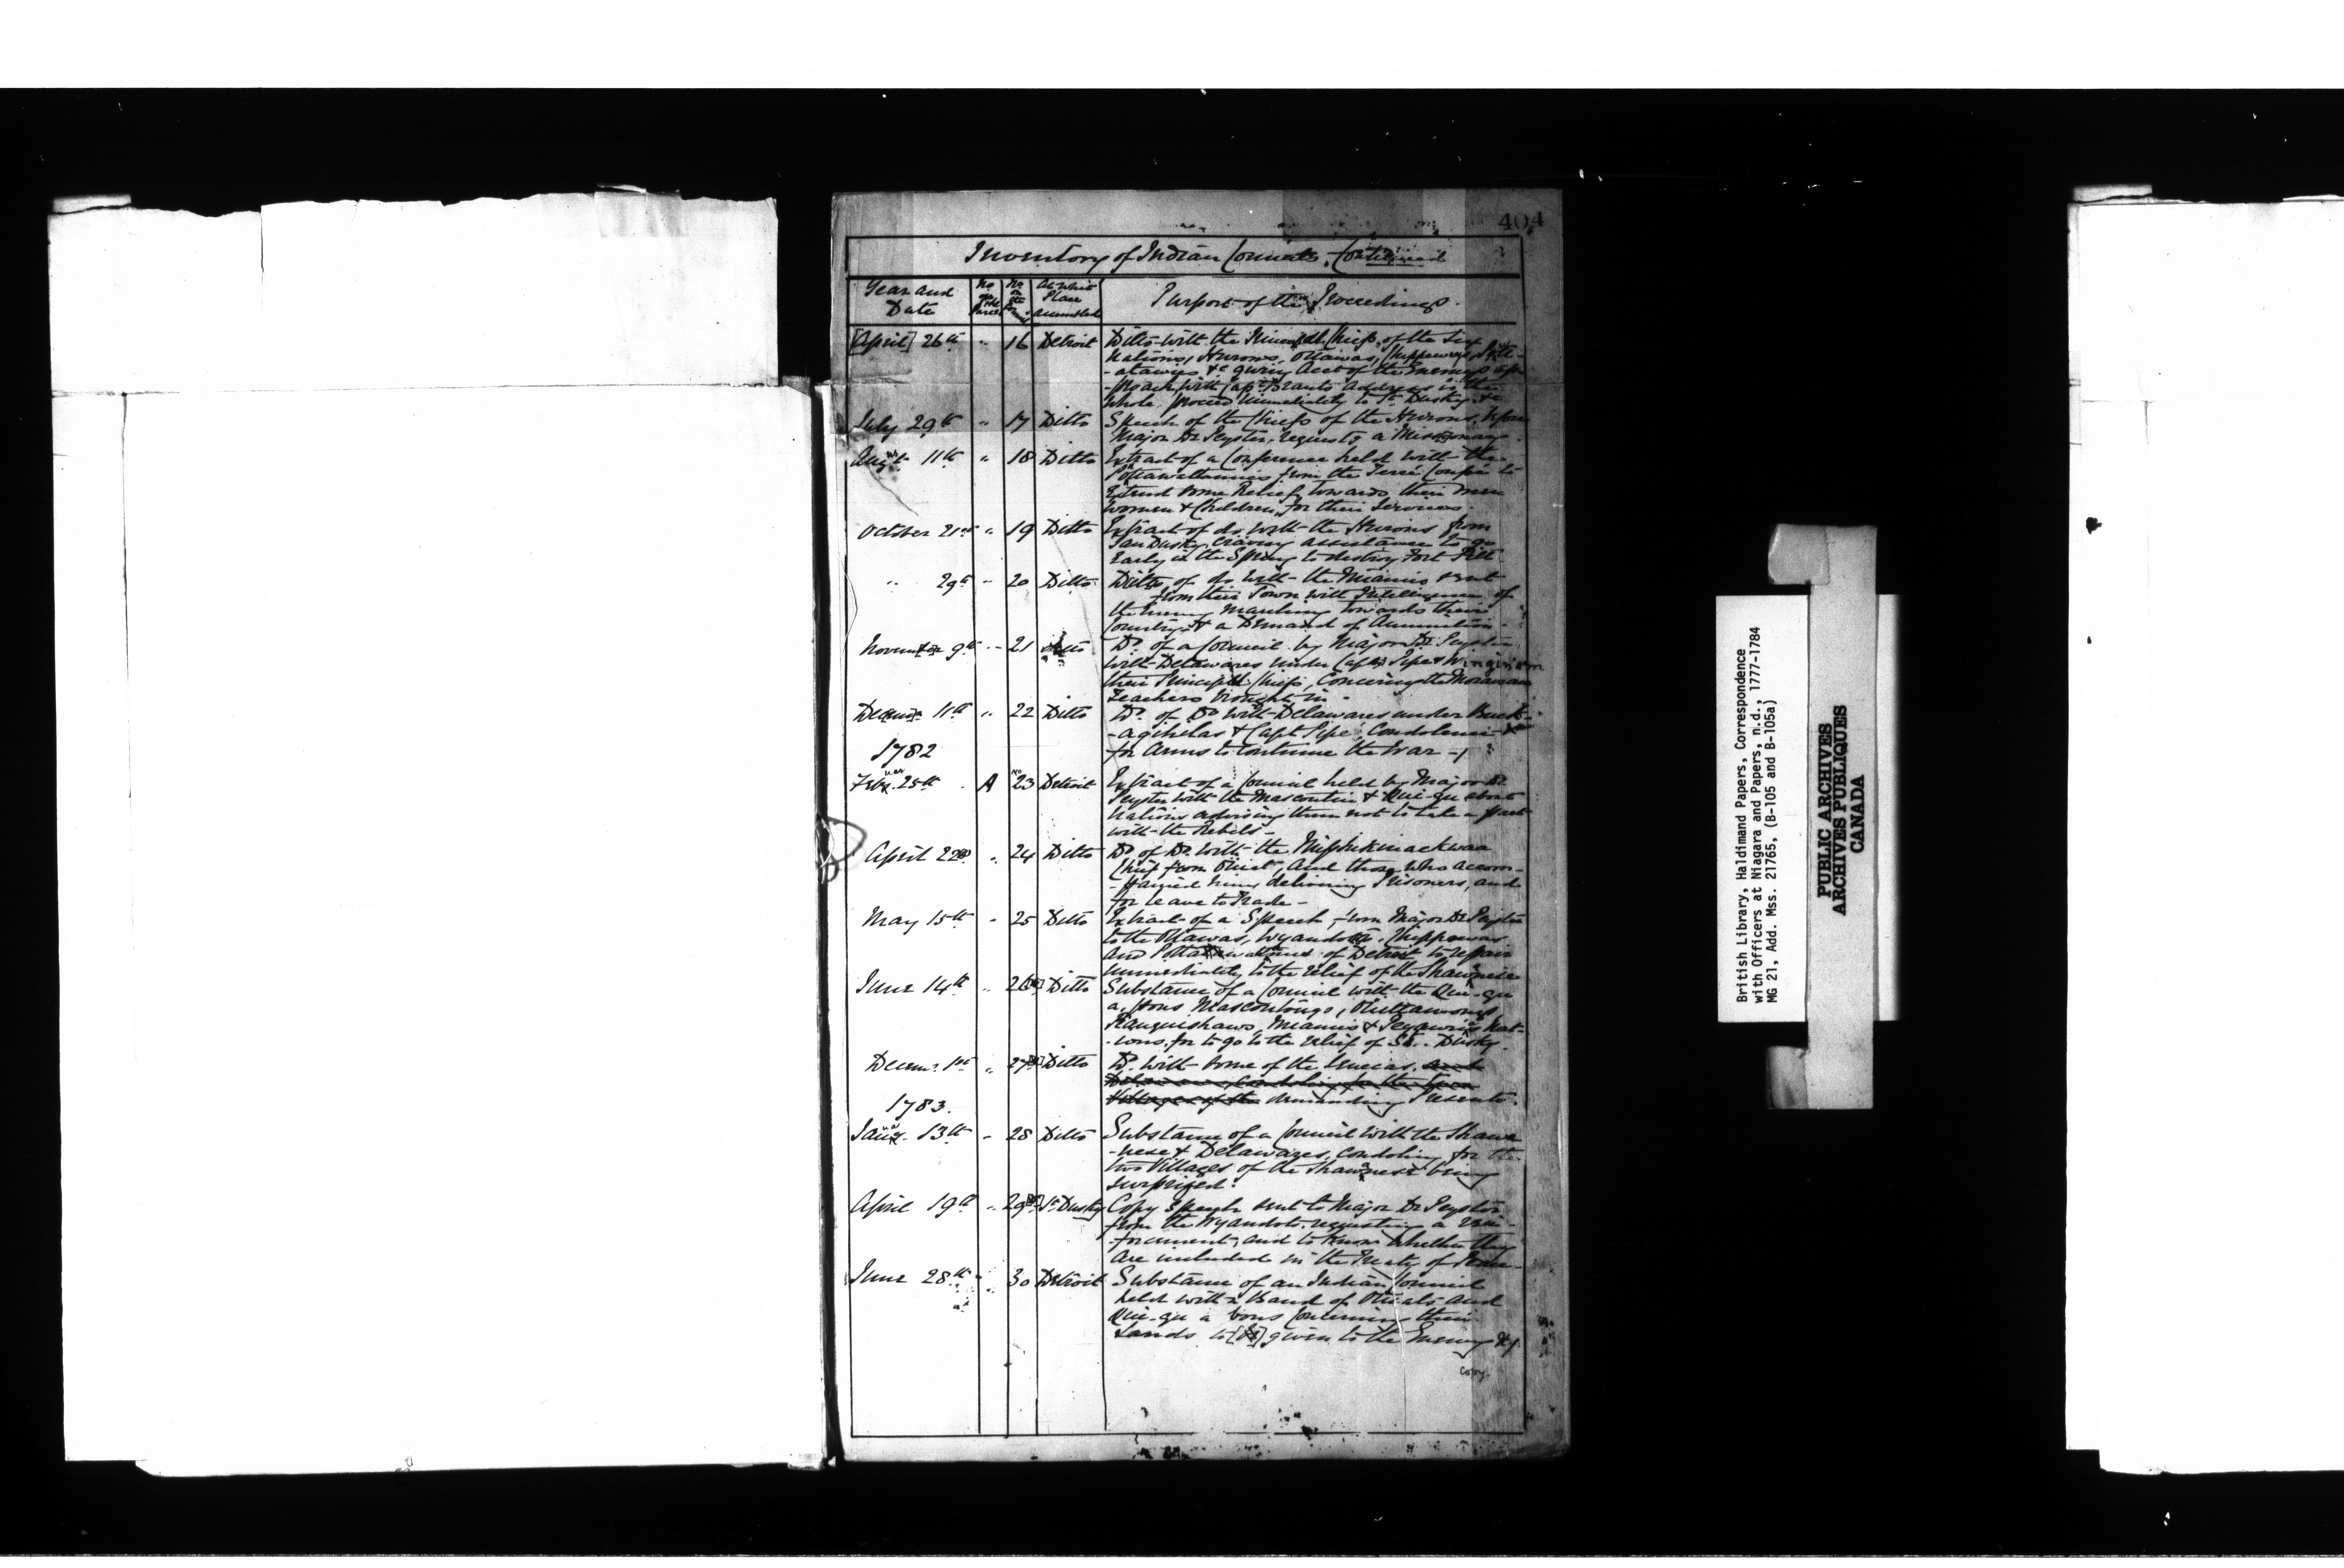 404
Inventory of Indian Councils, Continued
Year and Date
No on the Parcel
No on the Council
At what Place assembled
Purport of the Proceedings.
[April] 26th " 16 Detroit Ditto with the Principal Chiefs, of the Six
Nations, Hurons, Ottawas, Chippeways, Pott-
-atawies &c giving Acct of the Enemys ap-
-proach, with Capt Brants Address is the
whole proceed immediately to St Dusky &c
July 29th " 17 Ditto Speech of the Chiefs of the Hurons, before
Major De Peyster, requests a Missionary.
Augt 11th " 18 Ditto Extract of a Conference held with the
Pottawattamies from the Terre Coupé to
Extend some Relief towards their men
women & Children, for their Services.
October 21st " 19 Ditto Extract of do with the Hurons from
San Dusky, craving assistance to go
Early in the Spring to destroy Fort Pitt
" 29th " 20 Ditto Ditto of do with the Miamis sent
from their Town with Intelligence of
the Enemy marching towards their
Country & a Demand of Ammunition.
November 9th " 21 Ditto Do. of a Council by Major De Peyster
with Delawares under Capts Pipe & Winginam
their Principal Chiefs, Concerning the Moravian
Teachers brought in.
Decemr 11th " 22 Ditto Do. of Do with Delawares under Buck-
-agihelas & Capt Pipe, Condolence &
for Arms to Continue the War -
1782
Febr. 25th A No 23 Detroit Extract of a Council held by Major De
Peyster with the Mascoutin & Qui-qu
Nations advising them not to take a part
with the Rebels -
April 22d " 24 Ditto Do of Do. with the
Chief from and those who accom-
-panied him, delivering Prisoners, and
for leave to Trade -
May 15th " 25 Ditto Extract of a Speech from Major De Peyster
to the Ottawas, Wyandots, Chippewas
and Pottawatamies of Detroit to repair
immediately to the relief of the Shawnese
June 14th " 26 Ditto Substance of a Council with the Qui-qu
a, tons
Peanquishaws, Miamis & Nat-
-ions, for to go to the relief of St. Dusky.
Decemr. 1st " 27 Ditto Do. with some of the Senecas, and
Delawares, Condoling for the two
Villages of the demanding Presents.
1783.
Jany. 13th " 28 Ditto Substance of a Council with the Shawa
-nese & Delawares, Condoling for the
two Villages of the Shawnese being
surprized.
April 19th " 29 St Dusky Copy Speech sent to Major De Peyster
from the Wyandots, requesting a rein-
-forcement, and to know whether they
are included in the Treaty of Peace -
June 28th " 30 Detroit Substance of an Indian Council
held with a Band of and
Qui-qu a tons Concerning their
Lands to [be] given to the Enemy &c/
Copy.
British Library, Haldimand Papers, Correspondence
with Officers at Niagara and Papers, n.d., 1777-1784
MG 21, Add. Mss. 21765, (B-105 and B-105a)
PUBLIC ARCHIVES
ARCHIVES PUBLIQUES
CANADA